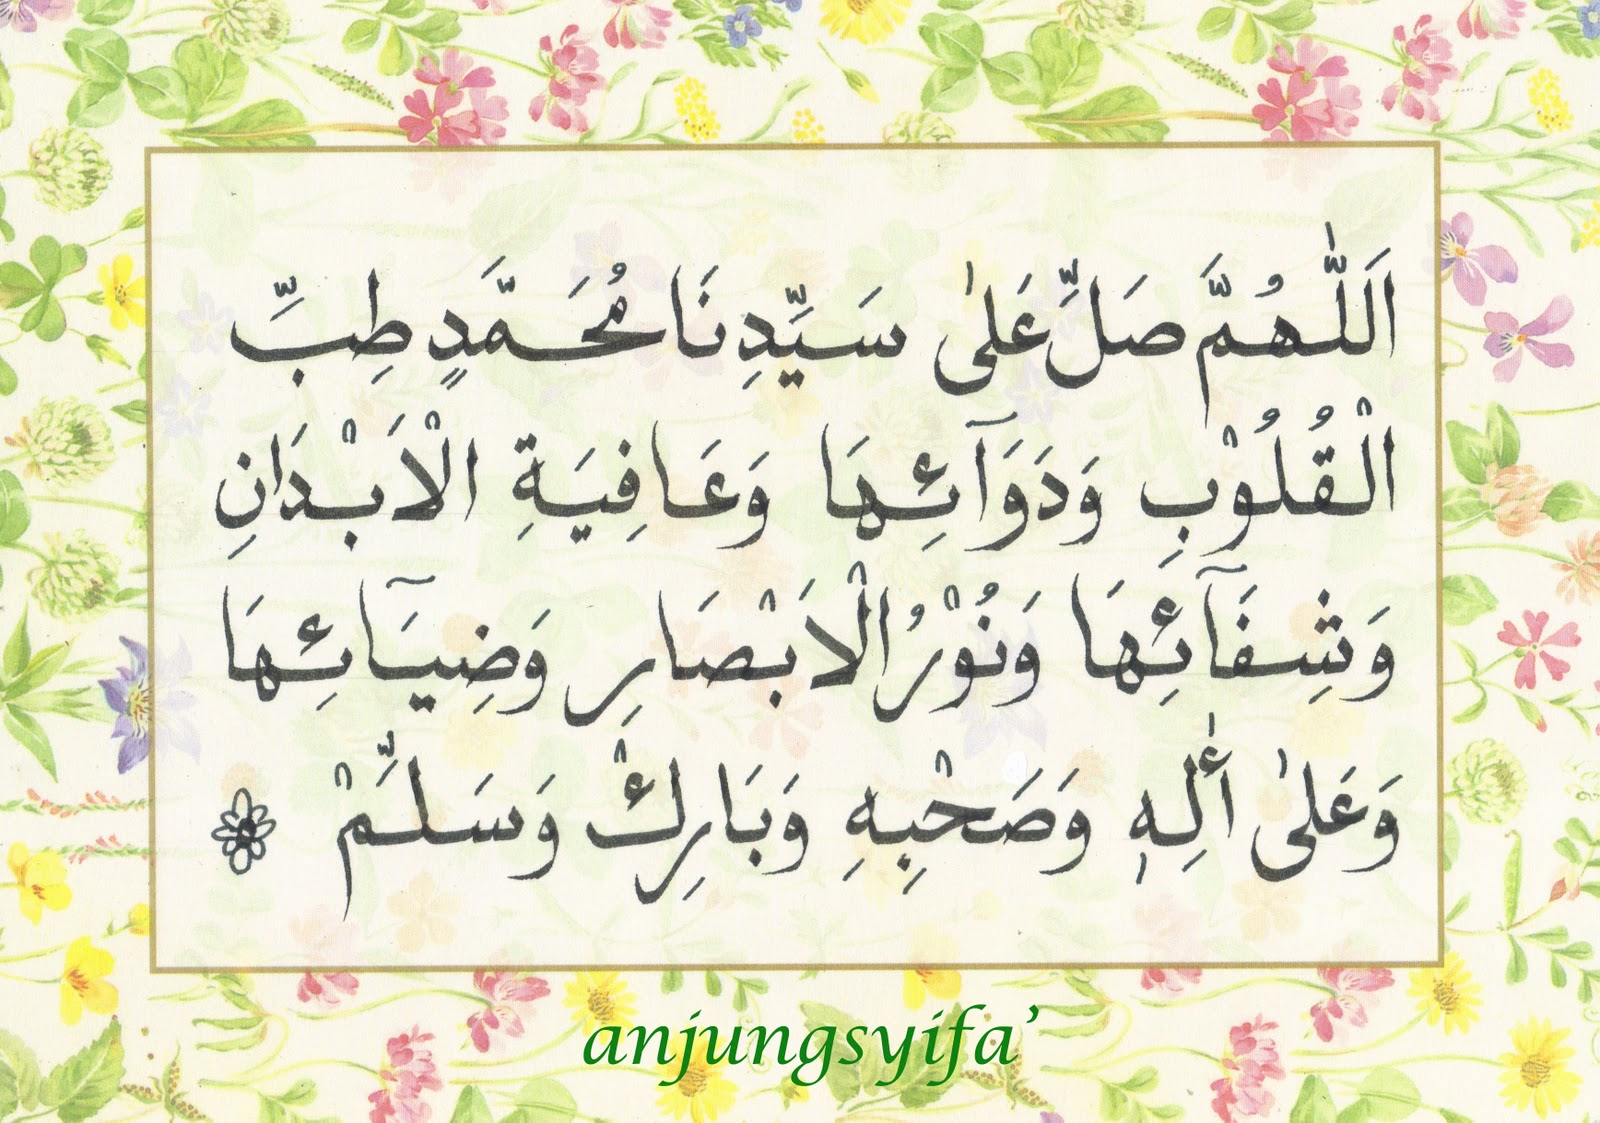 اَللّٰهُمَّ صَلِّ عَلىٰ سَيِّدِنَا مُحَمَّدٍ طِبِّ
الْقُلُوْبِ وَدَوَآئِهَا وَعَافِيَةِ الْاَبْدَانِ
وَشِفَآئِهَا وَنُوْرُ الْاَبْصَارِ وَضِيَآئِهَا
وَعَلىٰ أٰلِهٖ وَصَحْبِهِ وَبَارِكْ وَسَلِّمْ
anjungsyifa’